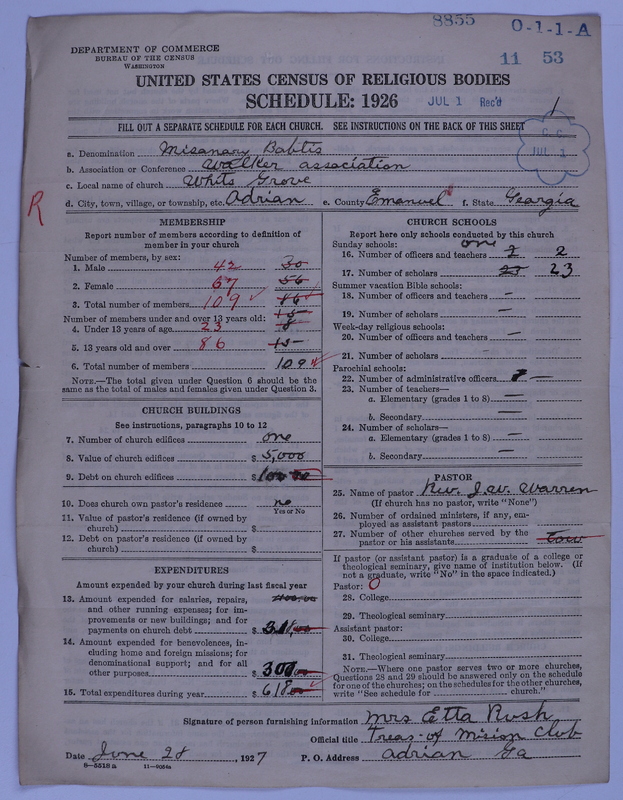 8855 O-1-1-A
DEPARTMENT OF COMMERCE
BUREAU OF THE CENSUS
WASHINGTON
11 53
UNITED STATES CENSUS OF RELIGIOUS BODIES
SCHEDULE: 1926 JUL 1 Rec'd
FILL OUT A SEPARATE SCHEDULE FOR EACH CHURCH. SEE INSTRUCTIONS ON THE BACK OF THIS SHEET
C. C.
JUL 1
a. Denomination Misanary Babtis
b. Association or Conference Walker association
c. Local name of church White Grove
d. City, town, village, or township, etc. Adrian e. County Emanuel f. State Georgia
R
MEMBERSHIP
Report number of members according to definition of
member in your church
Number of members, by sex:
1. Male 42 30
2. Female 67 56
3. Total number of members 109 16
Number of members under and over 13 years old: 15
4. Under 13 years of age 23 8
5. 13 years old and over 86 15
6. Total number of members 109
NOTE.—The total given under Question 6 should be the
same as the total of males and females given under Question 3.
CHURCH BUILDINGS
See instructions, paragraphs 10 to 12
7. Number of church edifices one
8. Value of church edifices $ 5,000
9. Debt on church edifices $
10. Does church own pastor's residence no
Yes or No
11. Value of pastor's residence (if owned by
church) $
12. Debt on pastor's residence (if owned by
church) $
EXPENDITURES
Amount expended by your church during last fiscal year
13. Amount expended for salaries, repairs,
and other running expenses; for im-
provements or new buildings; and for
payments on church debt $
14. Amount expended for benevolences, in-
cluding home and foreign missions; for
denominational support; and for all
other purposes $
15. Total expenditures during year $ 618
CHURCH SCHOOLS
Report here only schools conducted by this church
Sunday schools: one
16. Number of officers and teachers 2 2
17. Number of scholars 23 23
Summer vacation Bible schools:
18. Number of officers and teachers —
19. Number of scholars —
Week-day religious schools:
20. Number of officers and teachers —
21. Number of scholars —
Parochial schools:
22. Number of administrative officers —
23. Number of teachers—
a. Elementary (grades 1 to 8) —
b. Secondary —
24. Number of scholars—
a. Elementary (grades 1 to 8) —
b. Secondary —
PASTOR
25. Name of pastor Rev. J. W. Warren
(If church has no pastor, write "None")
26. Number of ordained ministers, if any, em-
ployed as assistant pastors
27. Number of other churches served by the
pastor or his assistants
If pastor (or assistant pastor) is a graduate of a college or
theological seminary, give name of institution below. (If
not a graduate, write "No" in the space indicated.)
Pastor: O
28. College
29. Theological seminary
Assistant pastor:
30. College
31. Theological seminary
NOTE.—Where one pastor serves two or more churches,
Questions 28 and 29 should be answered only on the schedule
for one of the churches; on the schedules for the other churches,
write "See schedule for church."
Signature of person furnishing information Mrs Etta Rush
Official title Treas- of Mision Club
Date June 28, 1927 P. O. Address Adrian Ga
8—5518 a